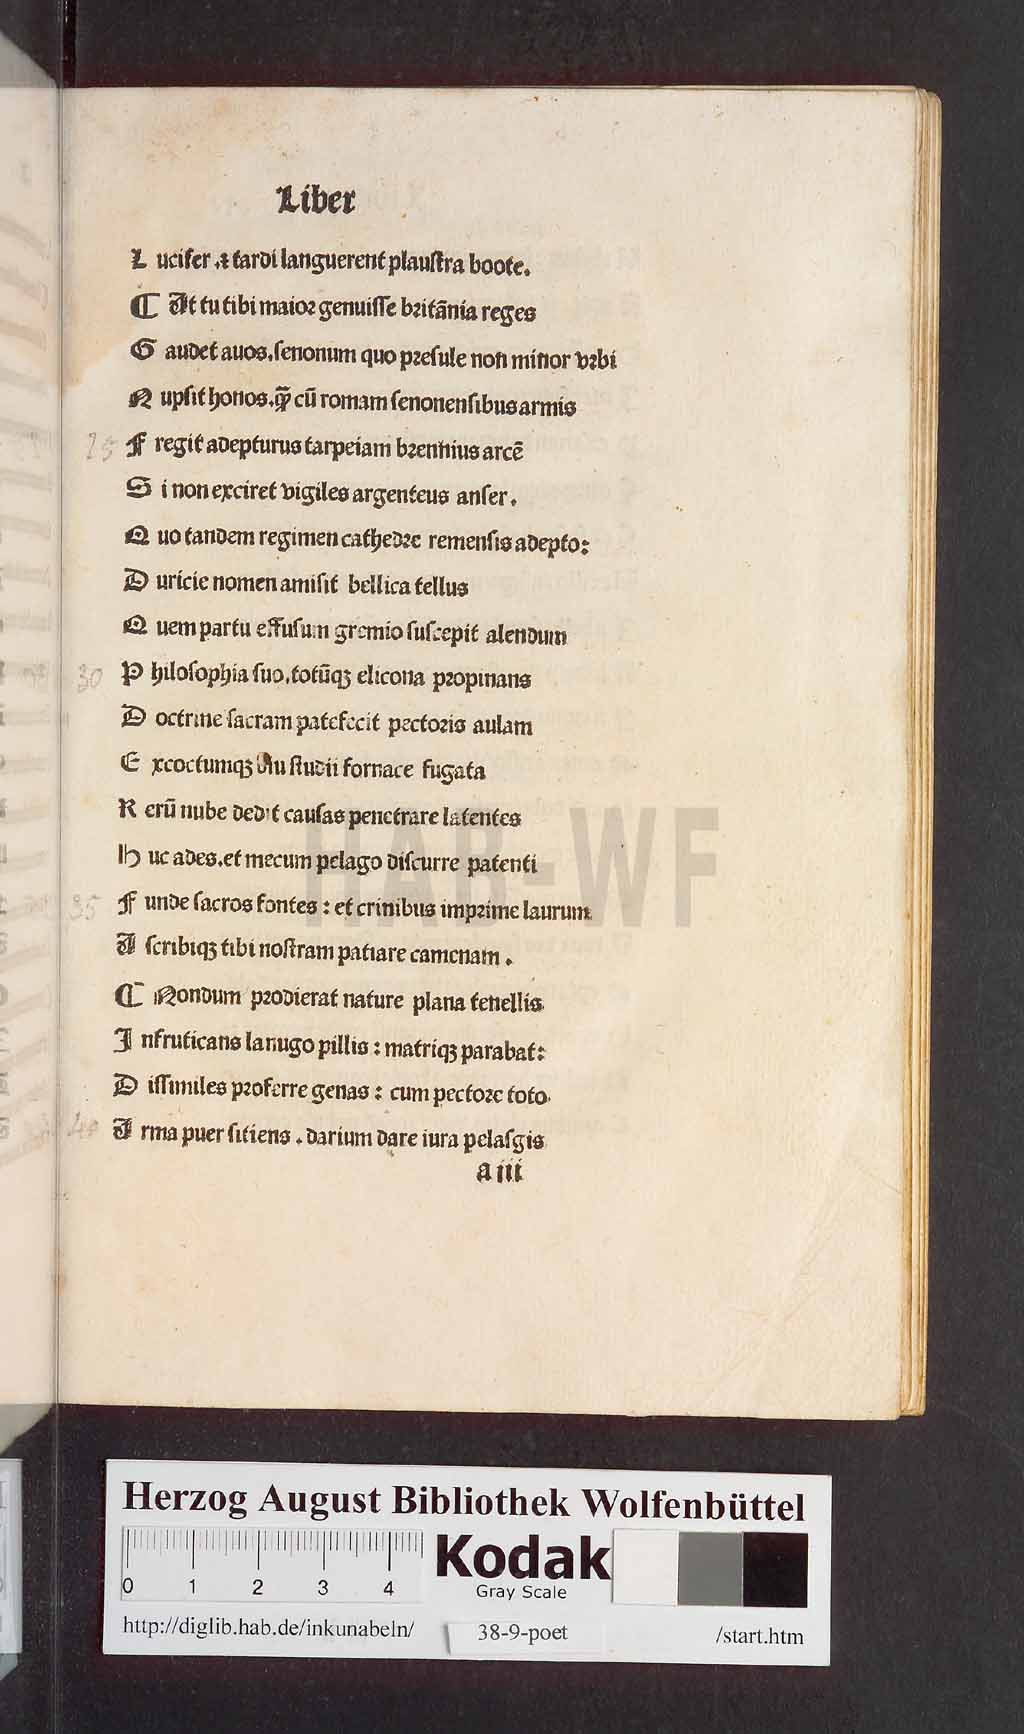 Liber
L ucifer .⁊ tardi languerent plauſtra boote.
¶ At tu tibi maioꝛ genuiſſe bꝛitãnia reges
G audet auos.ſenonum quo pꝛeſule non minor vꝛbi
N upſit honos.ꝙ̃ cũ romam ſenonenſibus armis
25 F regit adepturus tarpeiam bꝛennius arcẽ
S i non exciret vigiles argenteus anſer.
Q uo tandem regimen cathedꝛe remenſis adepto:
D uricie nomen amiſit bellica tellus
Q uem partu effuſum gremio ſuſcepit alendum
30 P hiloſophia ſuo.totũqꝫ elicona pꝛopinans
D octrine ſacram patefecit pectoꝛis aulam
E xcoctumqꝫ diu ſtudii fornace fugata
R erũ nube dedit cauſas penetrare latentes
H uc ades.et mecum pelago diſcurre patenti
35 F unde ſacros fontes : et crinibus impꝛime laurum
A ſcribiqꝫ tibi noſtram patiare camenam .
¶ Nondum pꝛodierat nature plana tenellis
I nfruticans lanugo pillis : matriqꝫ parabat:
D iſſimiles pꝛoferre genas : cum pectoꝛe toto
40 A rma puer ſitiens . darium dare iura pelaſgis
a iii
HAB-WF
Herzog August Bibliothek Wolfenbüttel
0 1 2 3 4
Kodak
Gray Scale
http://diglib.hab.de/inkunabeln/ 38-9-poet /start.htm